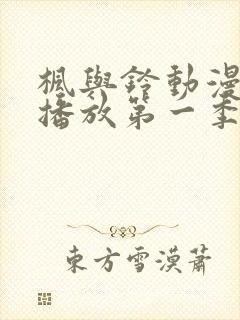 楓與鈴動漫
播放第一季
東方雪漠蕭